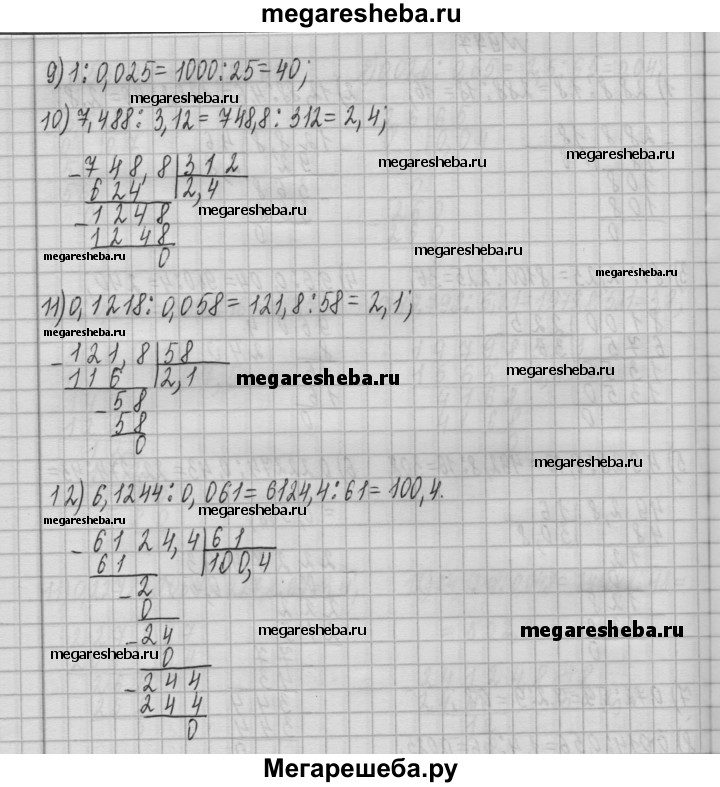 megaresheba.ru
9) 1 : 0,025 = 1000 : 25 = 40;
megaresheba.ru
10) 7,488 : 3,12 = 748,8 : 312 = 2,4;
megaresheba.ru
megaresheba.ru
- 748,8 | 312
624 | 2,4
megaresheba.ru
- 1248
1248
megaresheba.ru
megaresheba.ru
0
megaresheba.ru
11) 0,1218 : 0,058 = 121,8 : 58 = 2,1;
megaresheba.ru
- 121,8 | 58
116 | 2,1
megaresheba.ru
megaresheba.ru
- 58
58
0
megaresheba.ru
12) 6,1244 : 0,061 = 6124,4 : 61 = 100,4.
megaresheba.ru
megaresheba.ru
- 6124,4 | 61
61 | 100,4
- 2
0
- 24
megaresheba.ru
megaresheba.ru
0
megaresheba.ru
- 244
244
0
megaresheba.ru
Мегарешеба.ру